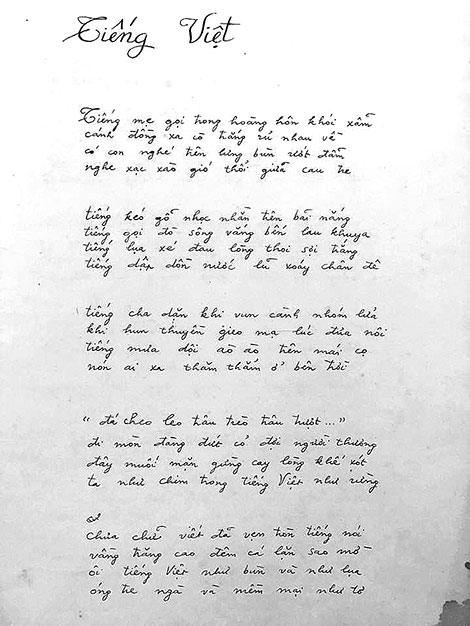 Tiếng Việt
Tiếng mẹ gọi trong hoàng hôn khói xẫm
cánh đồng xa cò trắng rủ nhau về
có con nghé trên lưng bùn ướt đẫm
nghe xạc xào gió thổi giữa cau tre
tiếng kéo gỗ nhọc nhằn trên bãi nắng
tiếng gọi đò sông vắng bến lau khuya
tiếng lụa xé đau lòng thoi sợi trắng
tiếng dập dồn nước lũ xoáy chân đê
tiếng cha dặn khi vun cành nhóm lửa
khi hun thuyền gieo mạ lúc đưa nôi
tiếng mưa dội ào ào trên mái cọ
nón ai xa thăm thẳm ở bên trời
"đá cheo leo trâu trèo trâu trượt..."
đi mòn đàng đứt cỏ đợi người thương
đây muối mặn gừng cay lòng khế xót
ta như chim trong tiếng Việt như rừng
Chưa chữ viết đã vẹn tròn tiếng nói
vầng trăng cao đêm cá lặn sao mờ
ôi tiếng Việt như bùn và như lụa
óng tre ngà và mềm mại như tơ